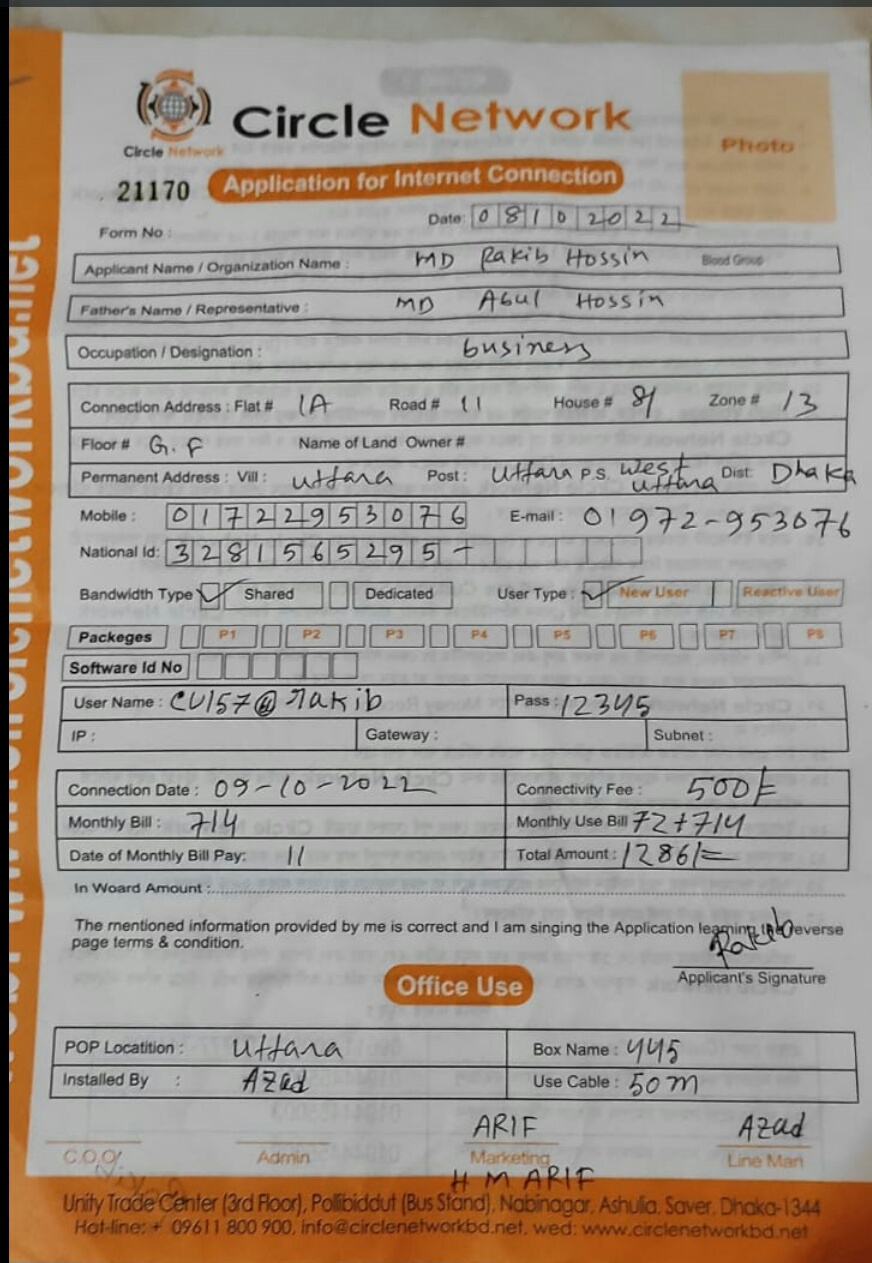 Circle Network
Circle Network
Photo
21170 Application for Internet Connection
Date: 08102022
Form No :
Applicant Name / Organization Name : MD Rakib Hossin Blood Group
Father's Name / Representative : MD Abul Hossin
Occupation / Designation : business
Connection Address : Flat # 1A Road # 11 House # 81 Zone # 13
Floor # G.F Name of Land Owner #
Permanent Address : Vill : uttara Post : Uttara P.S. West uttara Dist: Dhaka
Mobile : 01722953076 E-mail : 01972-953076
National Id: 3281565295-
Bandwidth Type Shared Dedicated User Type : New User Reactive User
Packeges P1 P2 P3 P4 P5 P6 P7 P8
Software Id No
User Name : CU157@rakib Pass : 12345
IP : Gateway : Subnet :
Connection Date : 09-10-2022 Connectivity Fee : 500/=
Monthly Bill : 714 Monthly Use Bill 72+714
Date of Monthly Bill Pay: 11 Total Amount : 1286/=
In Woard Amount :
The mentioned information provided by me is correct and I am singing the Application learning Reverse
page terms & condition.
Rakib
Applicant's Signature
Office Use
POP Locatition : Uttara Box Name : 445
Installed By : Azad Use Cable : 50m
ARIF Azad
C.O.O Admin Marketing Line Man
H M ARIF
Unity Trade Center (3rd Floor), Pollibiddut (Bus Stand), Nabinagar, Ashulia, Saver, Dhaka-1344
Hot-line: + 09611 800 900, info@circlenetworkbd.net, wed: www.circlenetworkbd.net